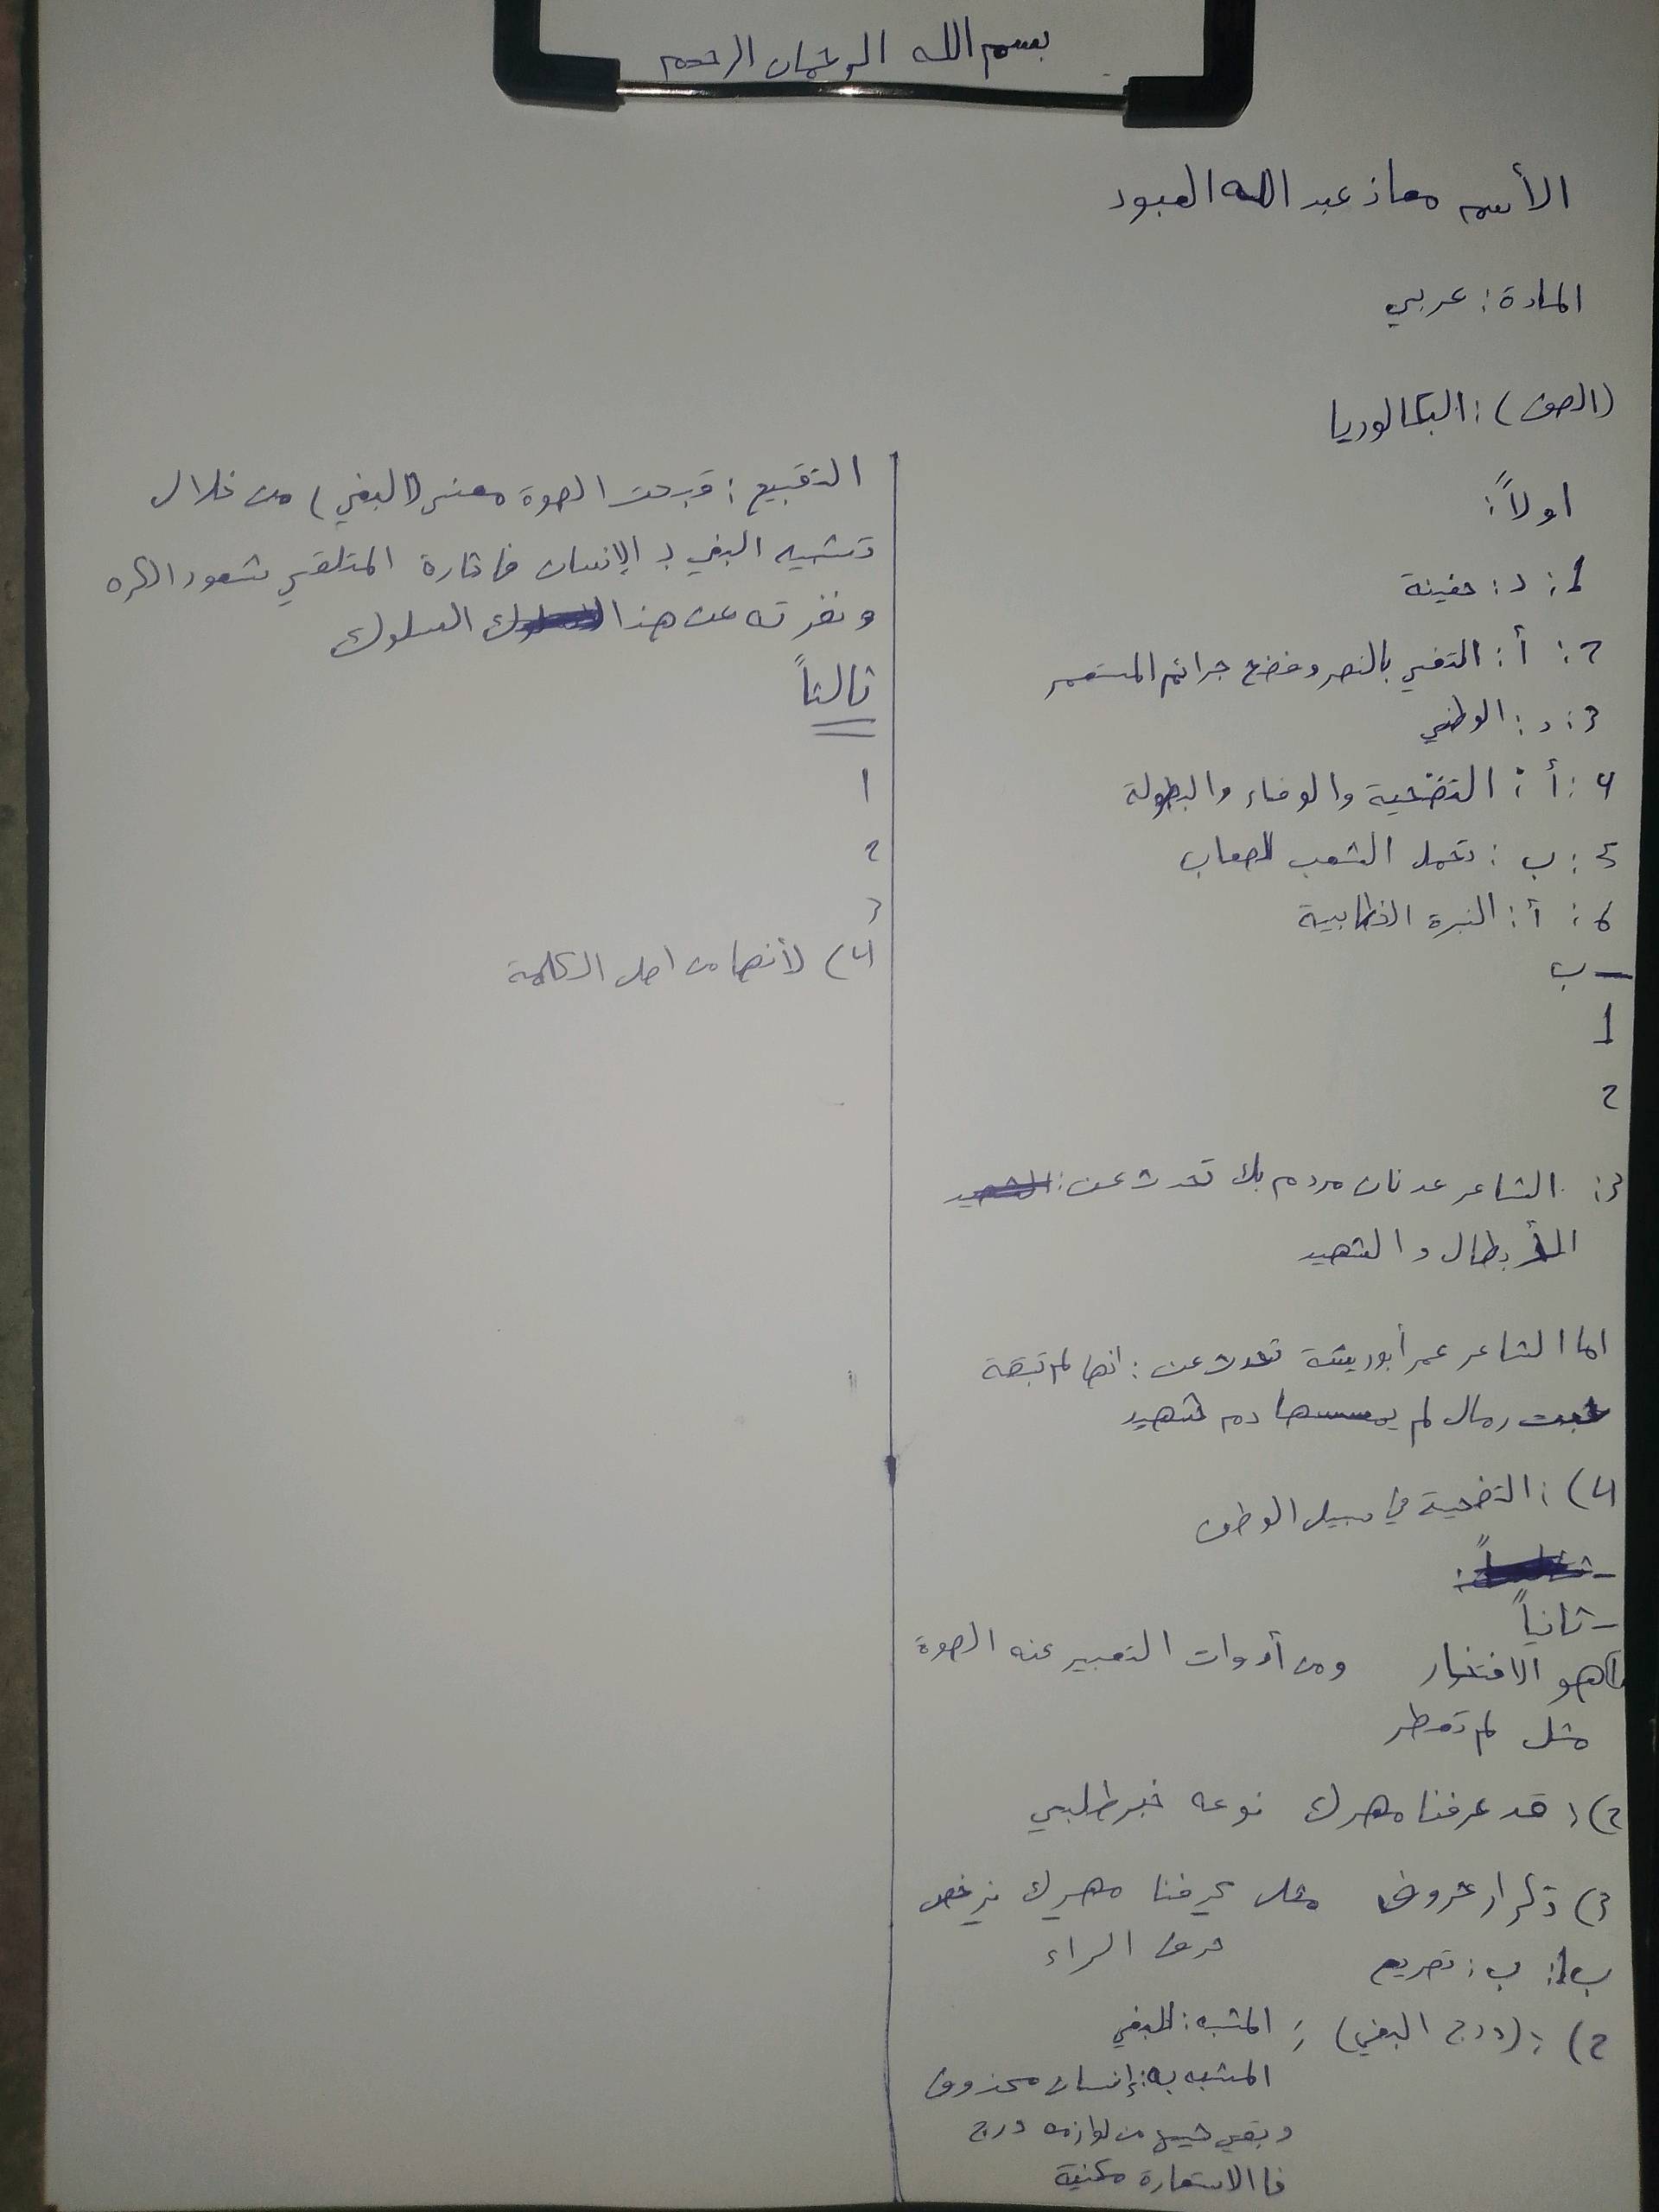 بسم الله الرحمان الرحيم
الأسم معاذ عبد الله العبود
المادة : عربي
(الصف) : البكالوريا
اولاً :
1 : د : دفينة
2 : أ : التغني بالنصر وفضح جرائم المستعمر
3 : د : الوطني
4 : أ : التضحية والوفاء والبطولة
5 : ب : تحمل الشعب للصعاب
6 : أ : النبرة الخطابية
ـ ب
1
2
3 : الشاعر عدنان مردم بك تحدث عن : الشهيد
الأبطال و الشهيد
اما الشاعر عمر أبو ريشة تحدث عن : انها لم تبقة
رمال لم يمسسها دم شهيد
4) : التضحية في سبيل الوطن
- ثانياً
هو الافتخار ومن أدوات التعبير عنه الصوة
مثل لم تعطر
2) : قد عرفنا مهرك نوعه خبر طلبي
3) تكرار حروف مثل عرفنا مهرك
حرف الراء
ب 1 : ب : تصريع
2) : (درج البغي) : المشبه : للبغي
المشبه به : إنسان محذوف
وبقي شيء من لوازمه درج
فا الاستعارة مكنية
التقبيح : قبحت الصوة معنى (البغي) من خلال
تشبيه البغي بـ الإنسان فاثارة المتلقي شعور الكره
ونفرته عن هذا السلوك السلوك
ثالثاً
1
2
3
4) لأنها من اصل الكلمة